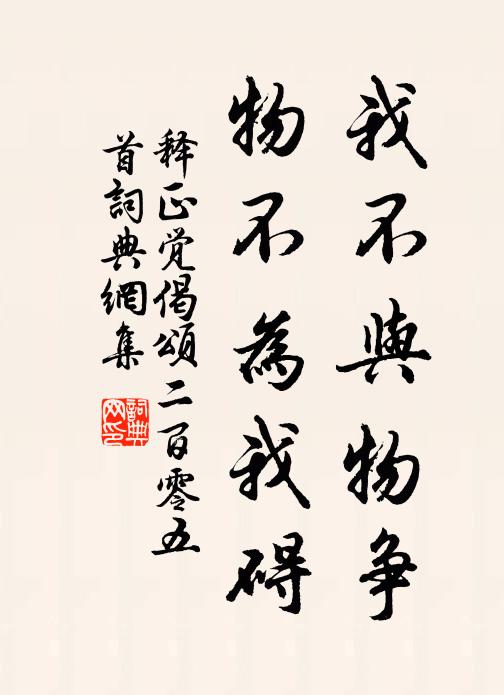 我不與物争
物不為我碍
释正觉偈頌二百零五
首詞典網集
詞典
网印